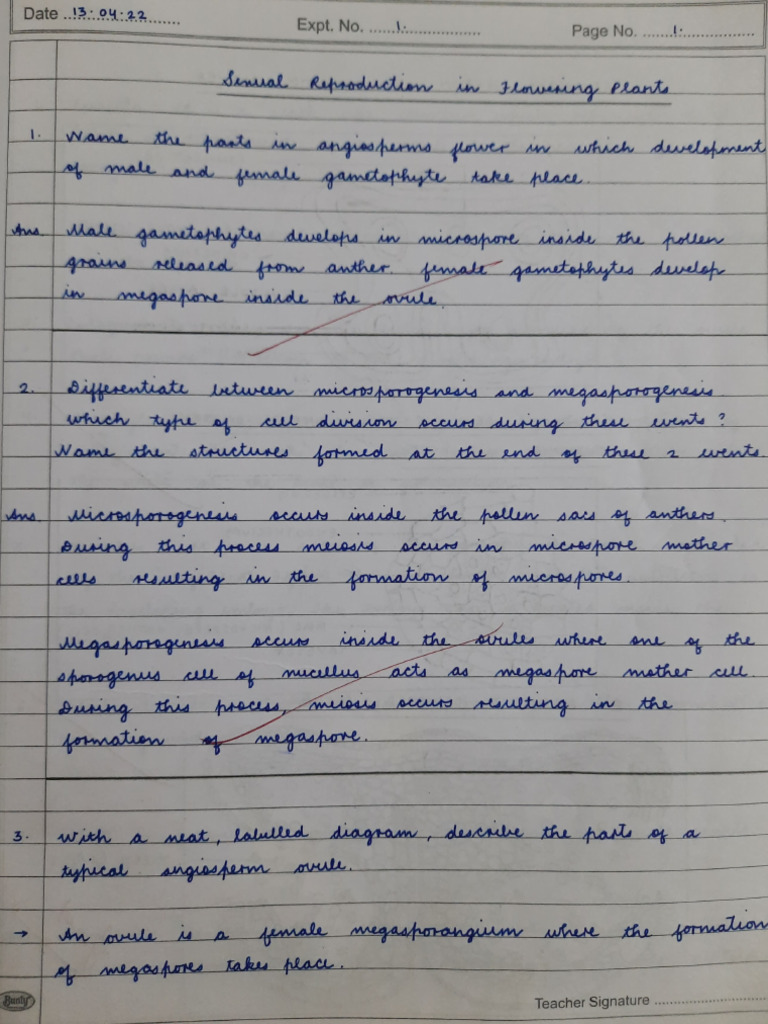 Date 13.04.22 Expt. No. 1. Page No. 1.
Sexual Reproduction in Flowering Plants
1. Name the parts in angiosperms flower in which development
of male and female gametophyte take place.
Ans. Male gametophytes develops in microspore inside the pollen
grains released from anther. female gametophytes develop
in megaspore inside the ovule.
2. Differentiate between microsporogenesis and megasporogenesis.
which type of cell division occurs during these events?
Name the structures formed at the end of these 2 events.
Ans. Microsporogenesis occurs inside the pollen sacs of anthers.
During this process meiosis occurs in microspore mother
cells resulting in the formation of microspores.
Megasporogenesis occurs inside the ovules where one of the
sporogenus cell of nucellus acts as megaspore mother cell.
During this process, meiosis occurs resulting in the
formation of megaspore.
3. With a neat, labelled diagram, describe the parts of a
typical angiosperm ovule.
→ An ovule is a female megasporangium where the formation
of megaspores takes place.
Bunty
Teacher Signature